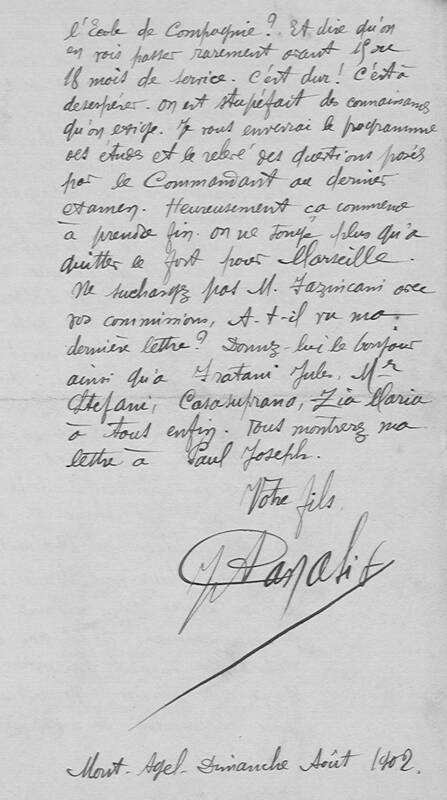 l'École de Compagnie? Et dire qu'on
en vois passer rarement avant 15 ou
18 mois de service. C'est dur! C'est à
desespérer. on est stupéfait des connaissances
qu'on exige. Je vous enverrai le programme
des études et le relevé des questions posées
par le Commandant au dernier
examen. Heureusement ça commence
à prendre fin. on ne songe plus qu'à
quitter le fort pour Marseille.
Ne surchargez pas M. avec
vos commissions, A-t-il vu ma
dernière lettre? Donnez-lui le bonjour
ainsi qu'à Fratani Jules, Mr
Stefani, Casasuprana, Zia Maria
à tous enfin. Vous montrerez ma
lettre à Paul Joseph.
Votre fils
Mont-Agel-Dimanche Août 1902.